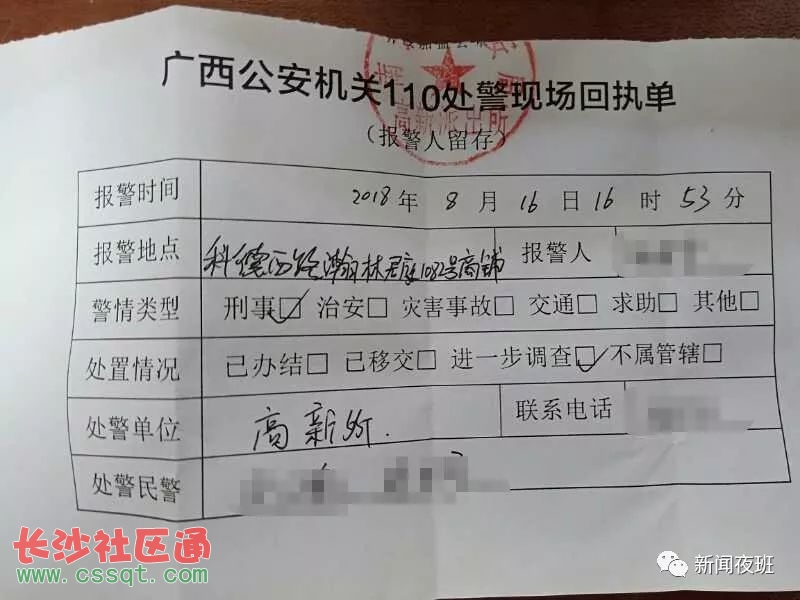 广西公安机关110处警现场回执单
高新派出所
(报警人留存)
报警时间 2018年 8月 16日 16时 53分
报警地点 科德西路瀚林君庭1082号商铺 报警人
警情类型 刑事☑ 治安□ 灾害事故□ 交通□ 求助□ 其他□
处置情况 已办结□ 已移交□ 进一步调查☑ 不属管辖□
处警单位 高新所. 联系电话
处警民警
长沙社区通
www.cssqt.com
新闻夜班